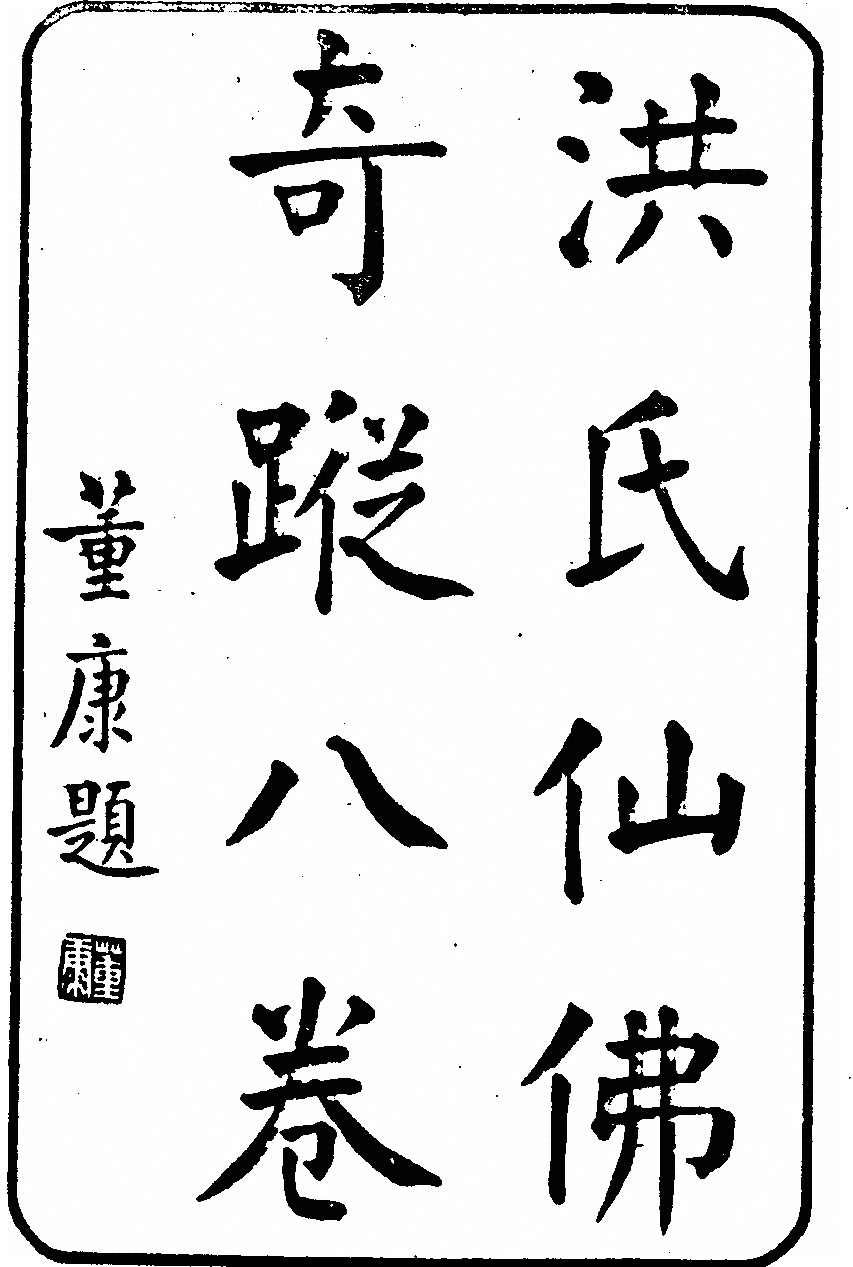 洪氏仙佛
奇蹤八卷
董康題
董康